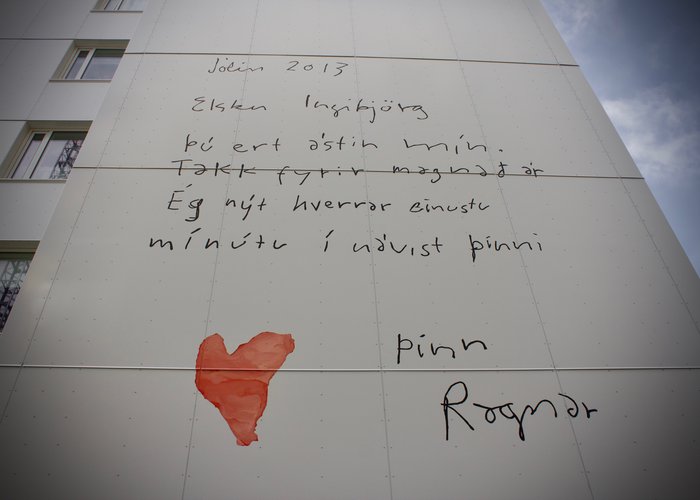 Jólin 2013
Elsku Ingibjörg
þú ert ástin mín.
Takk fyrir magnað ár
Ég nýt hverrar einustu
mínútu í návist þinni
þinn
Ragnar